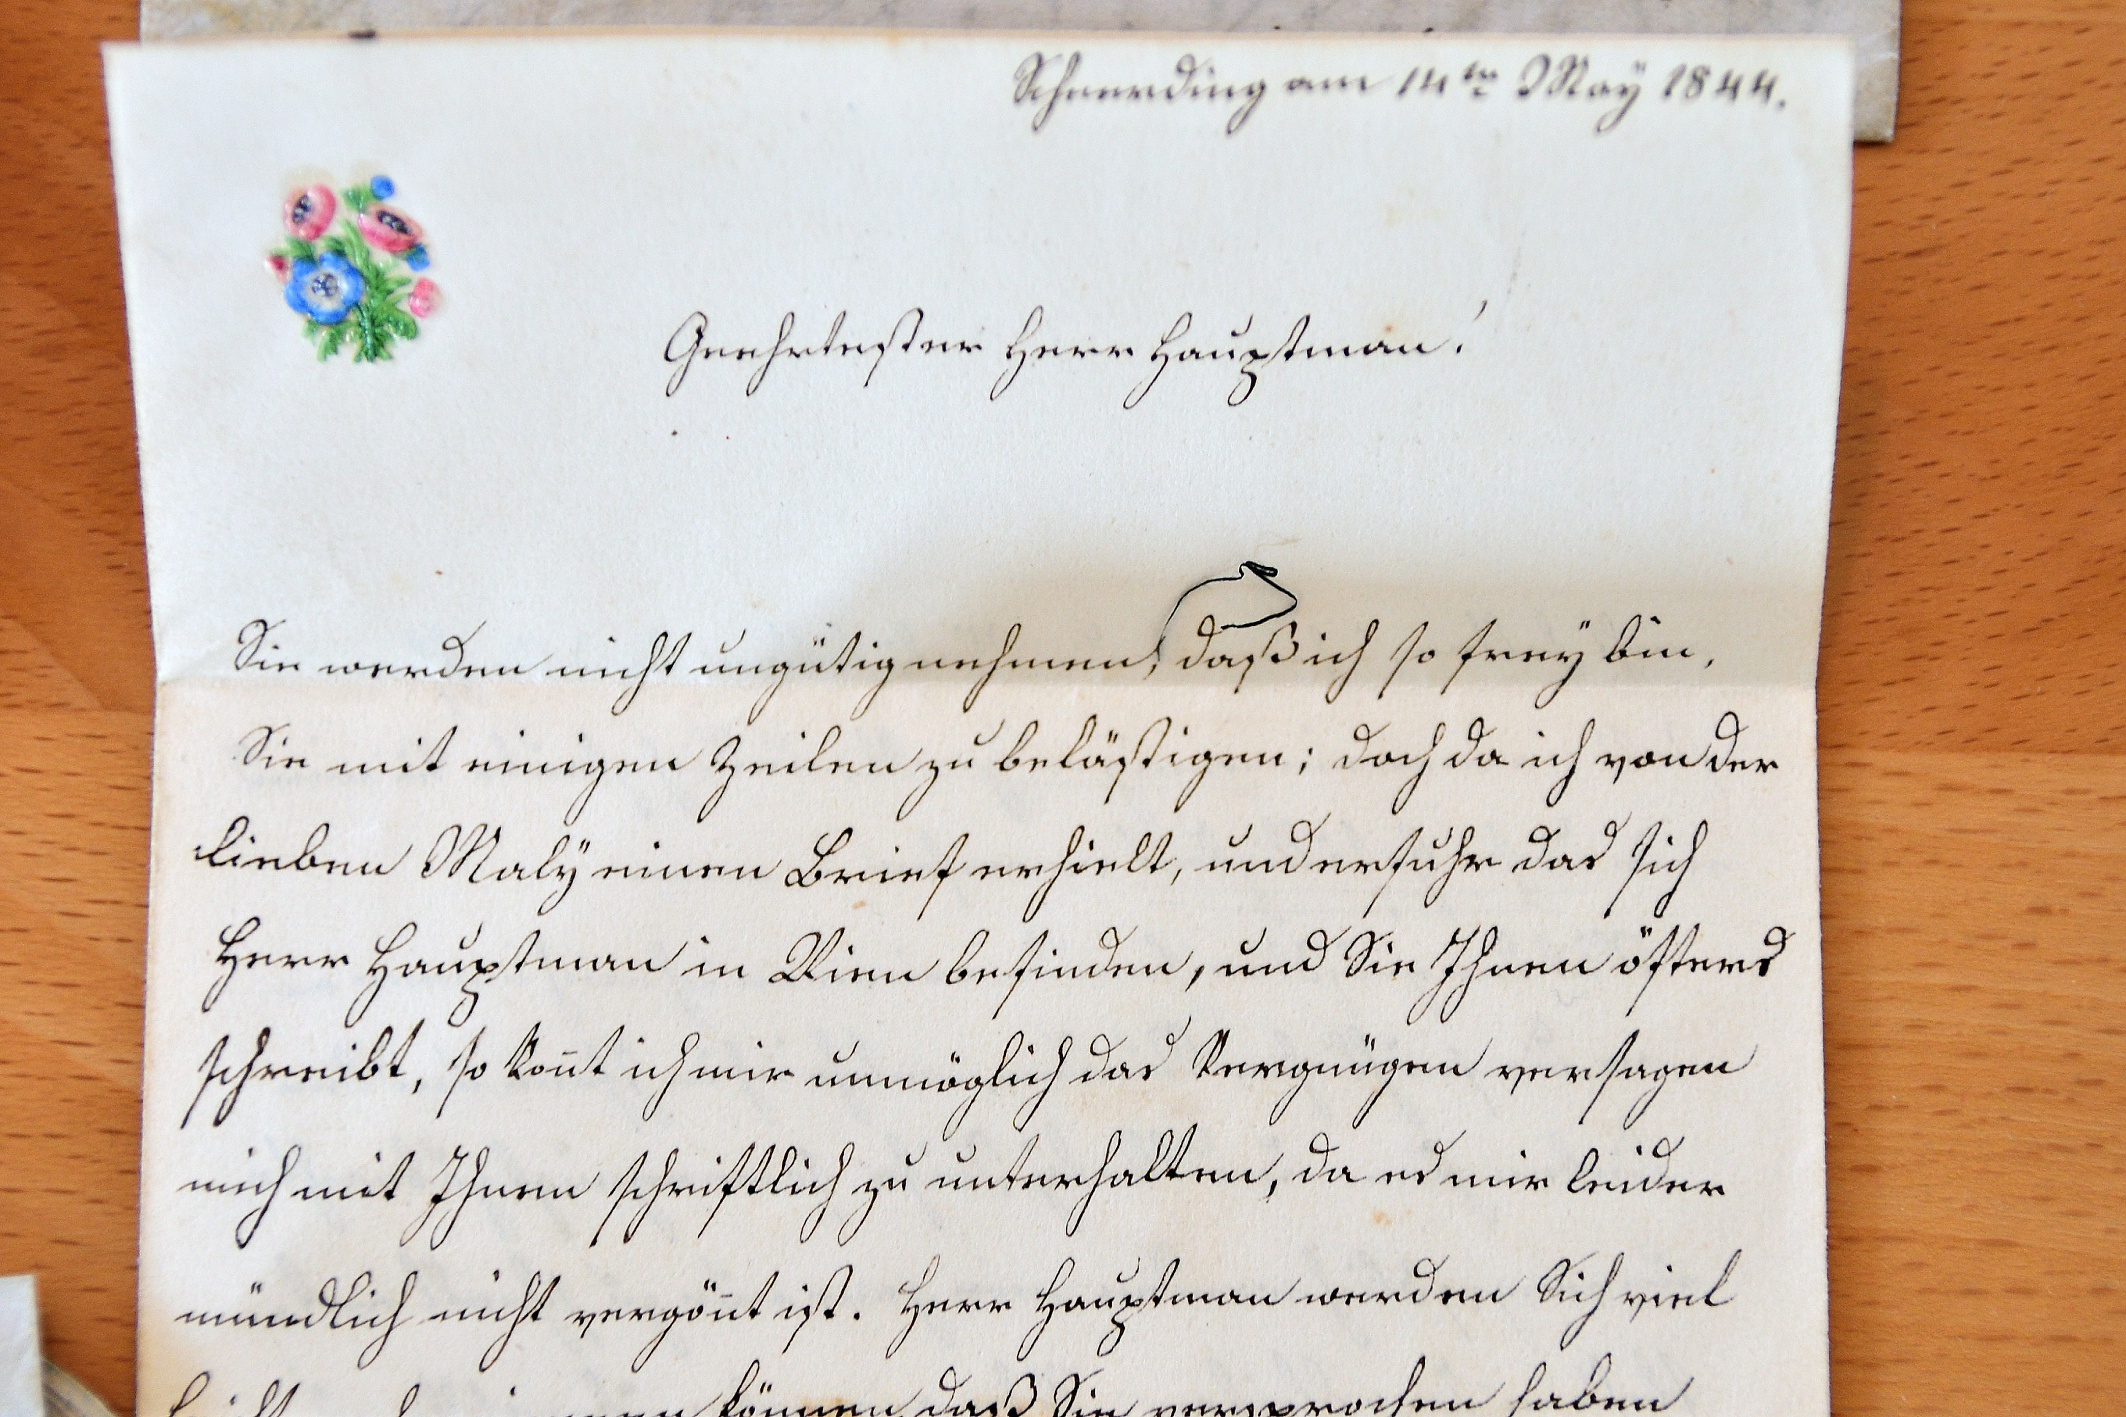 Scheerding am 14ten May 1844.
Geehrtester Herr Hauptman!
Sie werden nicht ungütig nehmen, daß ich so frey bin,
Sie mit einigen Zeilen zu belästigen; doch da ich von der
lieben Maly einen Brief erhielt, und erfuhr das sich
Herr Hauptman in Wien befinden, und Sie Ihnen öfters
schreibt, so kon̄t ich mir unmöglich das Vergnügen versagen
mich mit Ihnen schriftlich zu unterhalten, da es mir leider
mündlich nicht vergön̄t ist. Herr Hauptman werden Sich viel
können, daß Sie versprochen haben